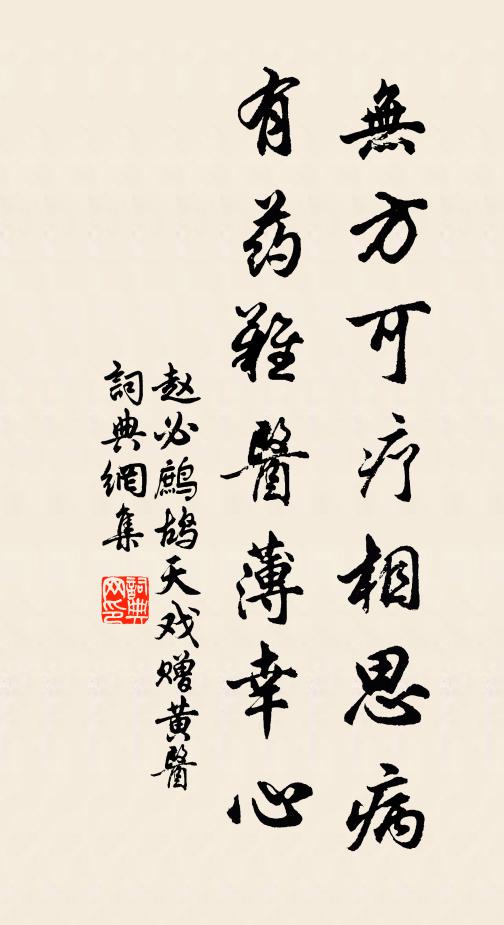 無方可疗相思病
有药難醫薄幸心
赵必鷓鸪天戏赠黄醫
詞典網集
詞典網印